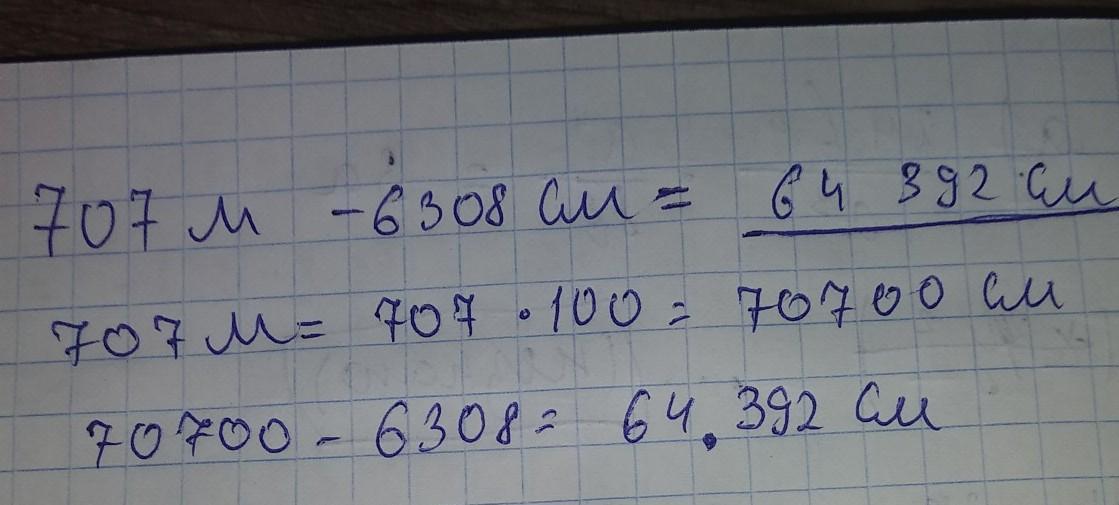 707 м - 6308 см = 64 392 см
707 м = 707 · 100 = 70700 см
70700 - 6308 = 64.392 см